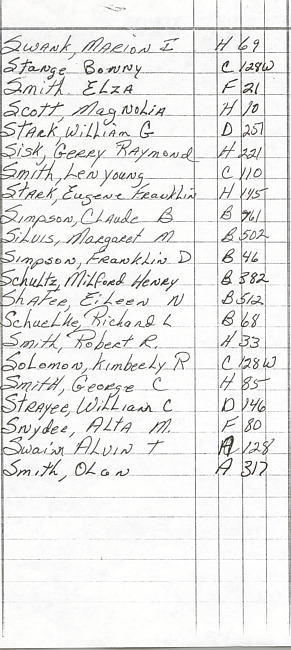 Swank, Marion I H 69
Stange Bonny C 128W
Smith, Elza F 21
Scott, Magnolia H 10
Stark, William G D 251
Sisk, Gerry Raymond H 221
Smith, Lenyoung C 110
Stark, Eugene Franklin H 145
Simpson, Claude B B 961
Silvis, Margaret M B 502
Simpson, Franklin D B 46
Schultz, Milford Henry B 382
Shafer, Eileen N B 512
Schuelke, Richard L B 68
Smith, Robert R. H 33
Solomon, Kimberly R C 128W
Smith, George C H 85
Strayer, William C D 146
Snyder, Alta M. F 80
Swaim Alvin T A 128
Smith, Olan A 317